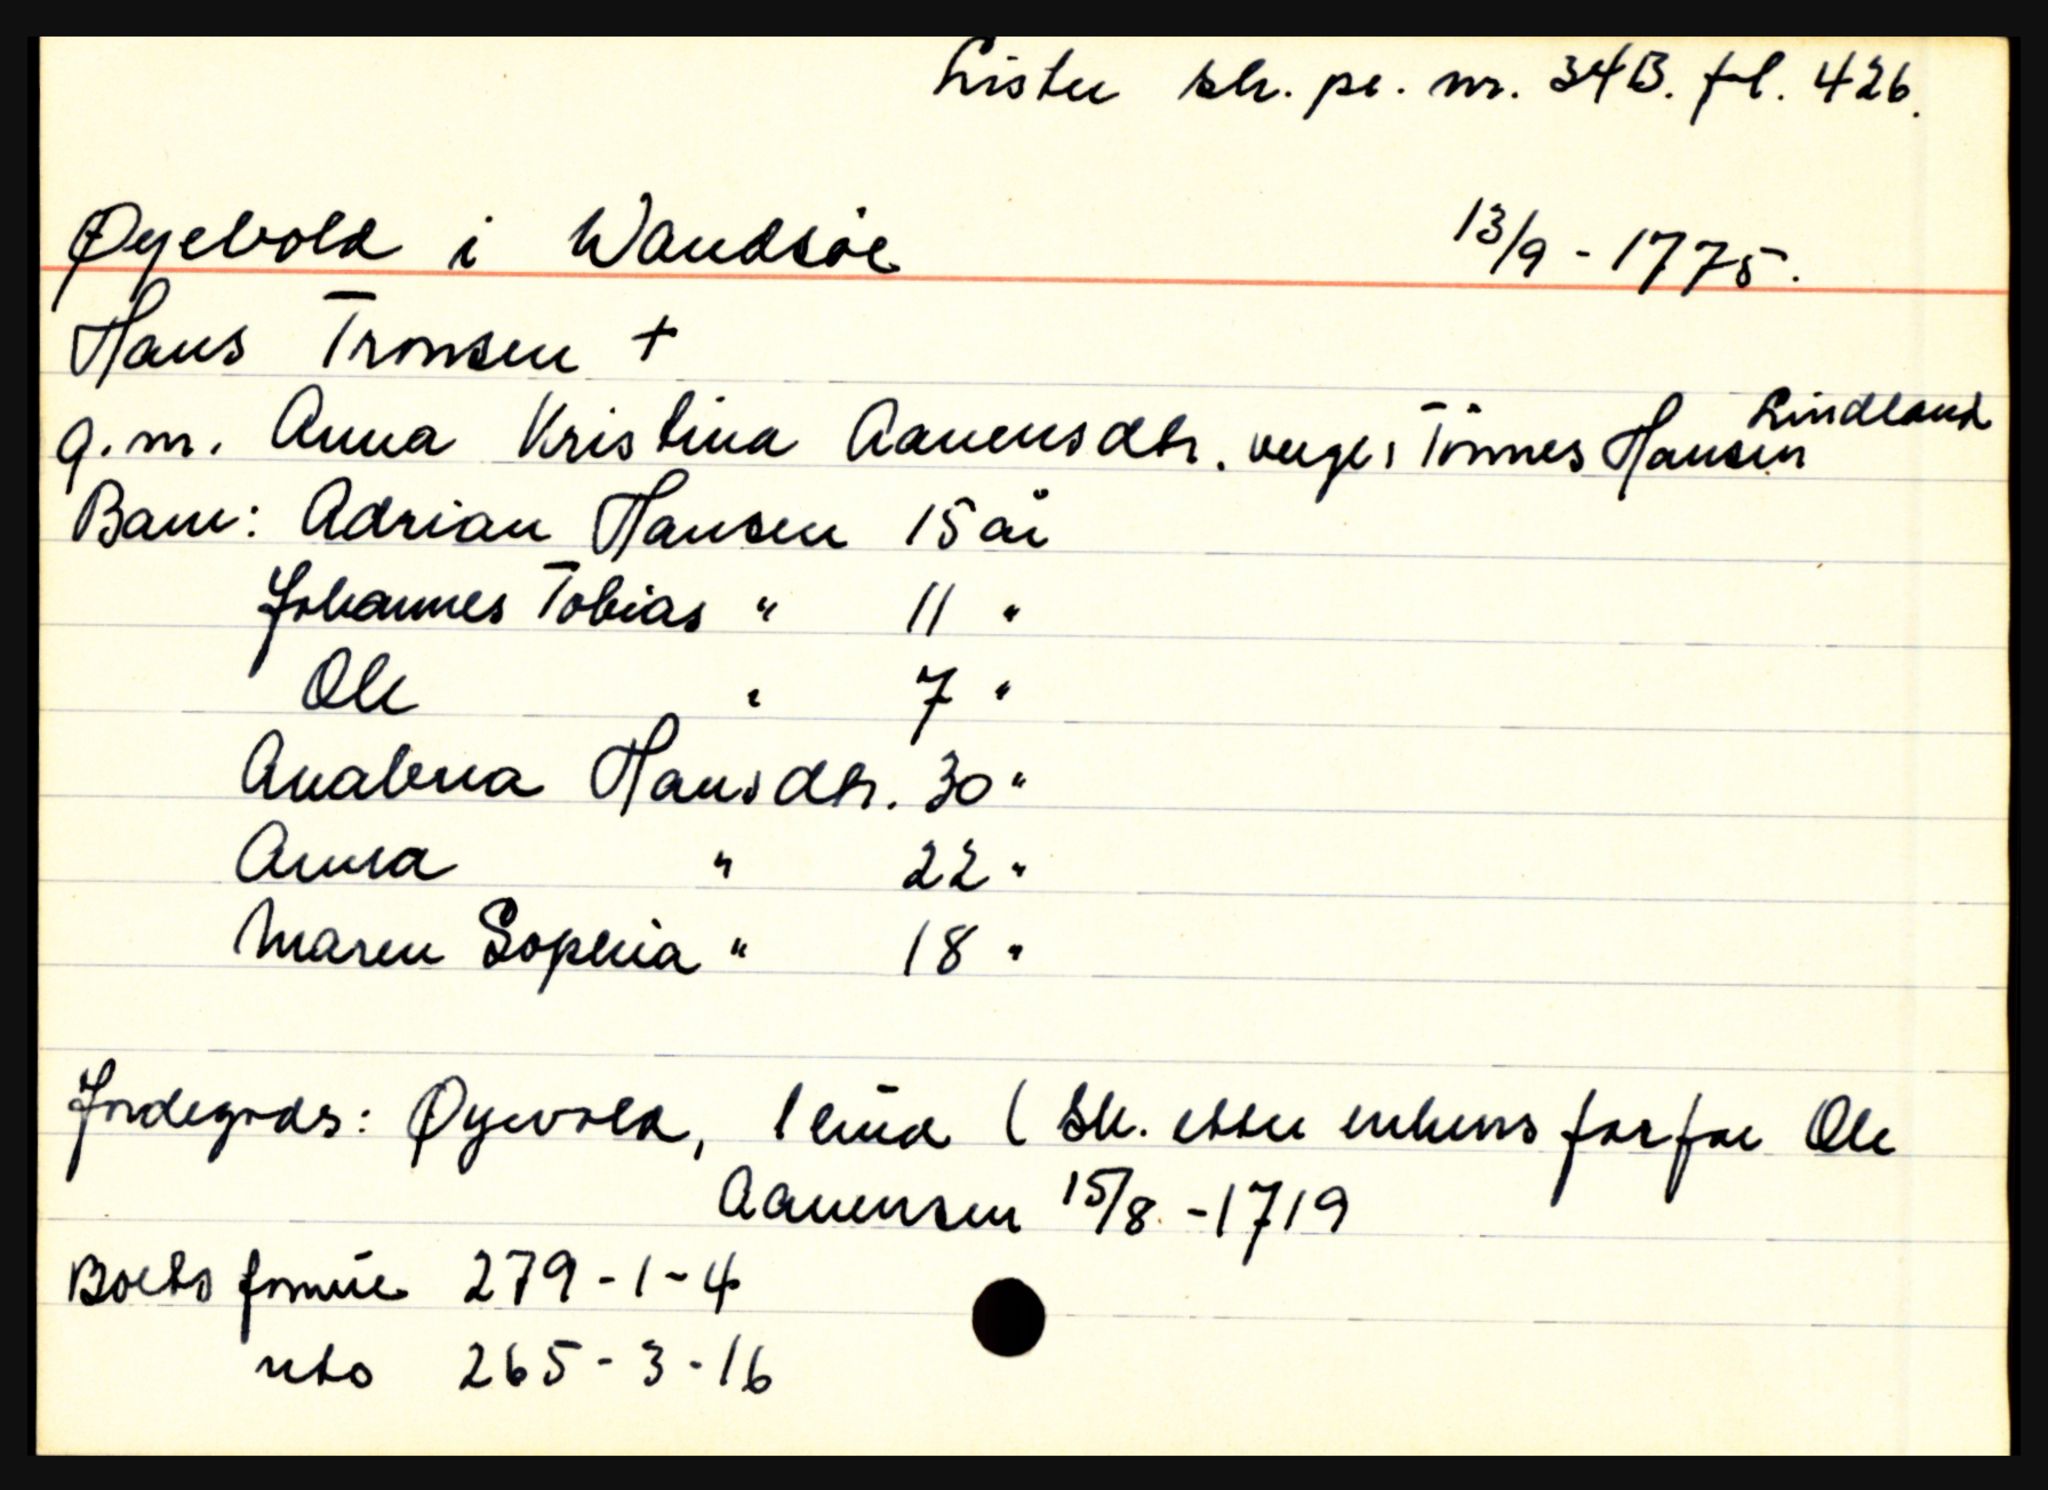 Lister sk. pr. nr. 34B. fol. 426.
Øyebold i Wandsøe 13/9 - 1775.
Hans Tronsen +
g.m. Anna Kristina Aanensdtr. verge: Tønnes Hansen Lindland
Barn: Adrian Hansen 15 år
Johannes Tobias " 11 "
Ole " 7 "
Anabena Hansdtr. 30 "
Anna " 22 "
Maren Sophia " 18 "
Jordegods: Øyevold, 1 hud ( Sk. etter enkens farfar Ole
Aanensen 15/8 - 1719
Boets formue 279 - 1 - 4
nto 265 - 3 - 16